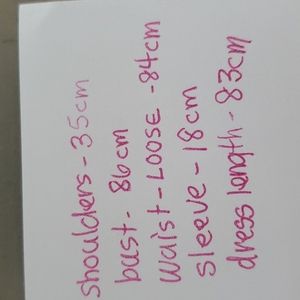 shoulders - 35cm
bust - 86cm
Waist - LOOSE - 84cm
sleeve - 18cm
dress length - 83cm